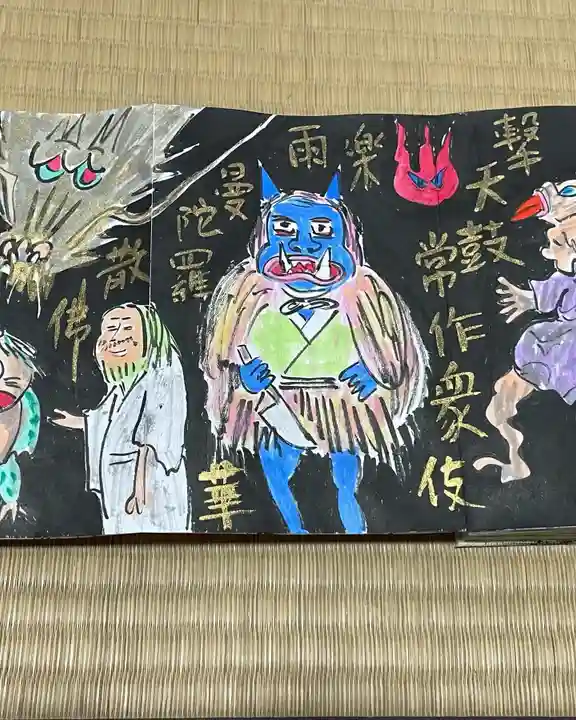 撃天鼓
常作衆伎
楽
雨
曼陀羅
華
散
佛